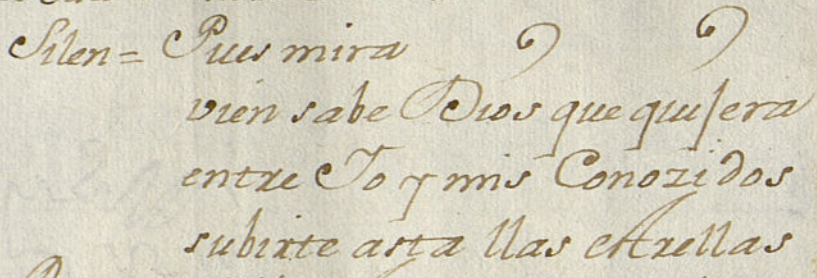 Silen= Pues mira
vien sabe Dios que quisera
entre Yo y mis Conozidos
subirte asta llas estrellas